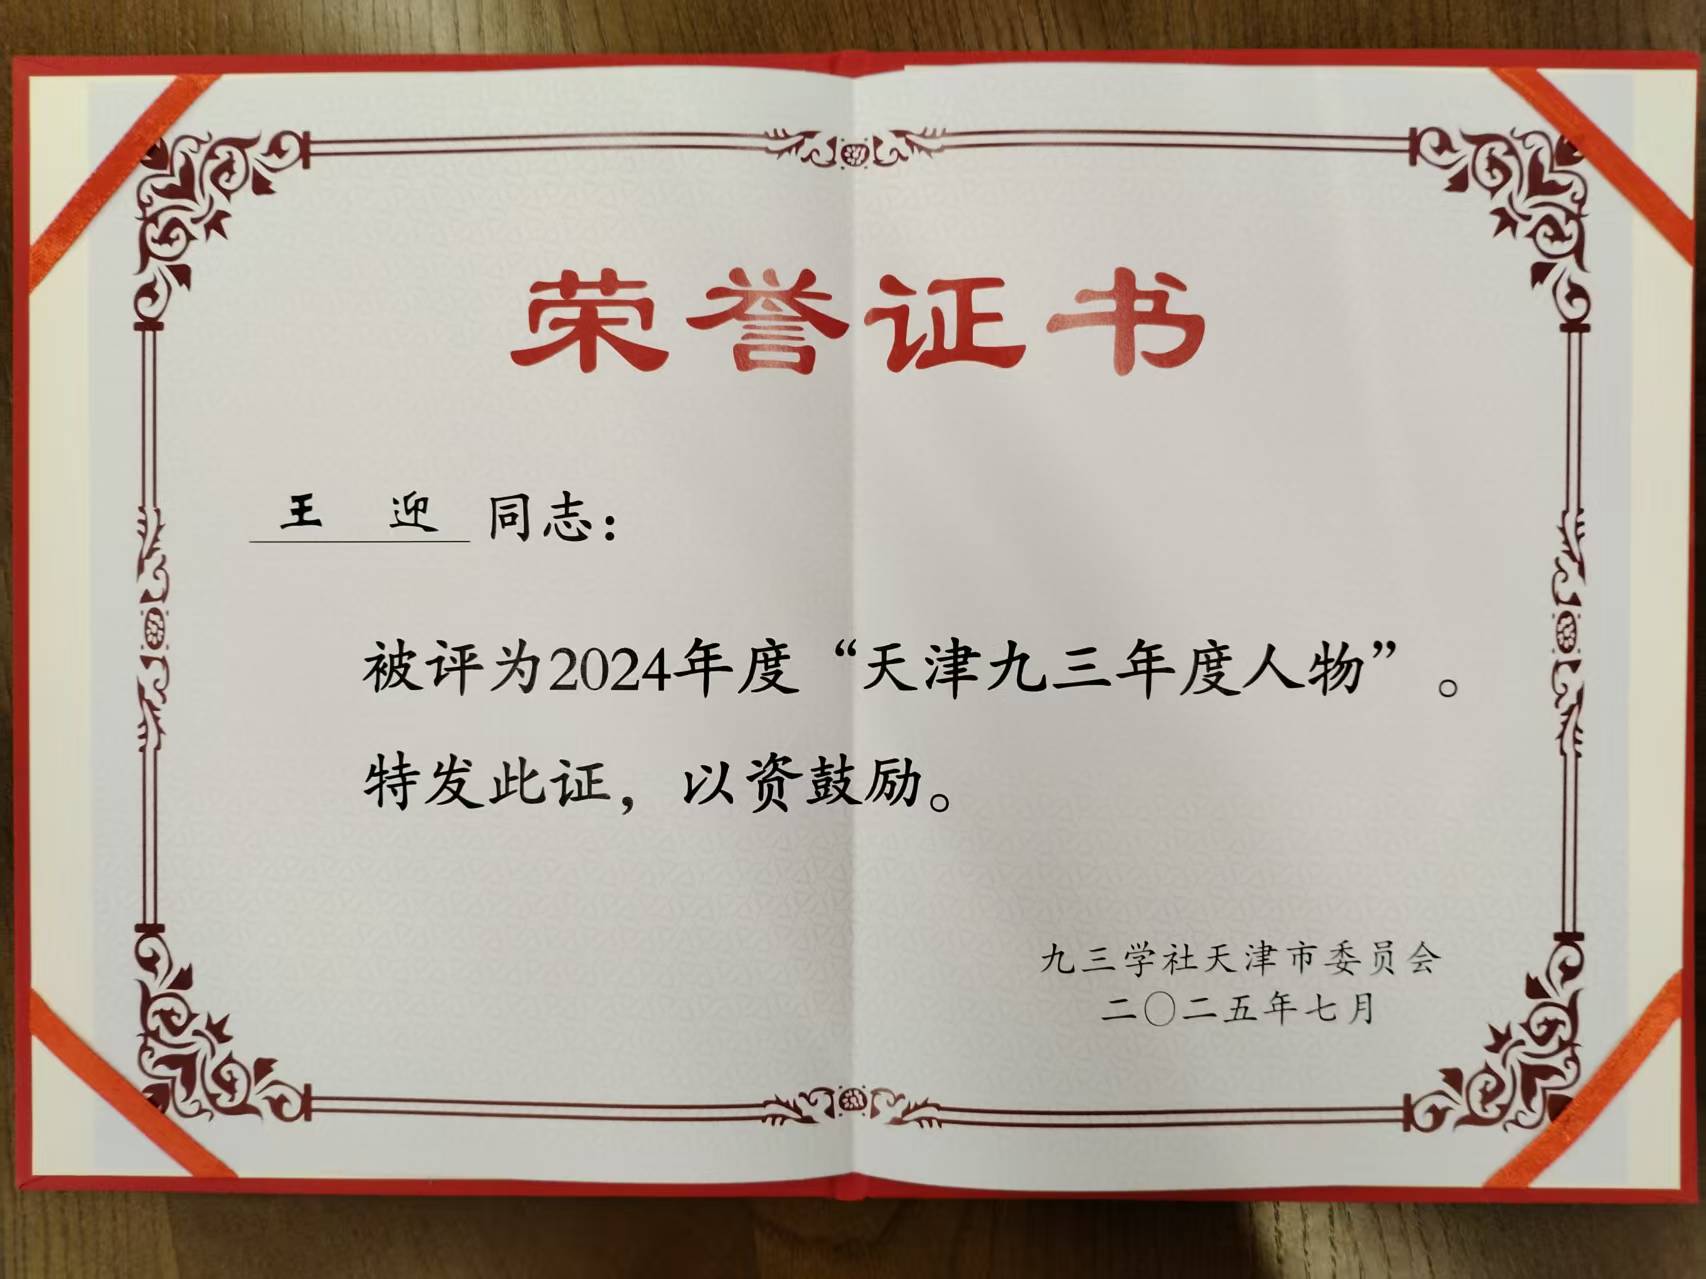 荣誉证书
王 迎 同志：
被评为2024年度“天津九三年度人物”。
特发此证，以资鼓励。
九三学社天津市委员会
二〇二五年七月